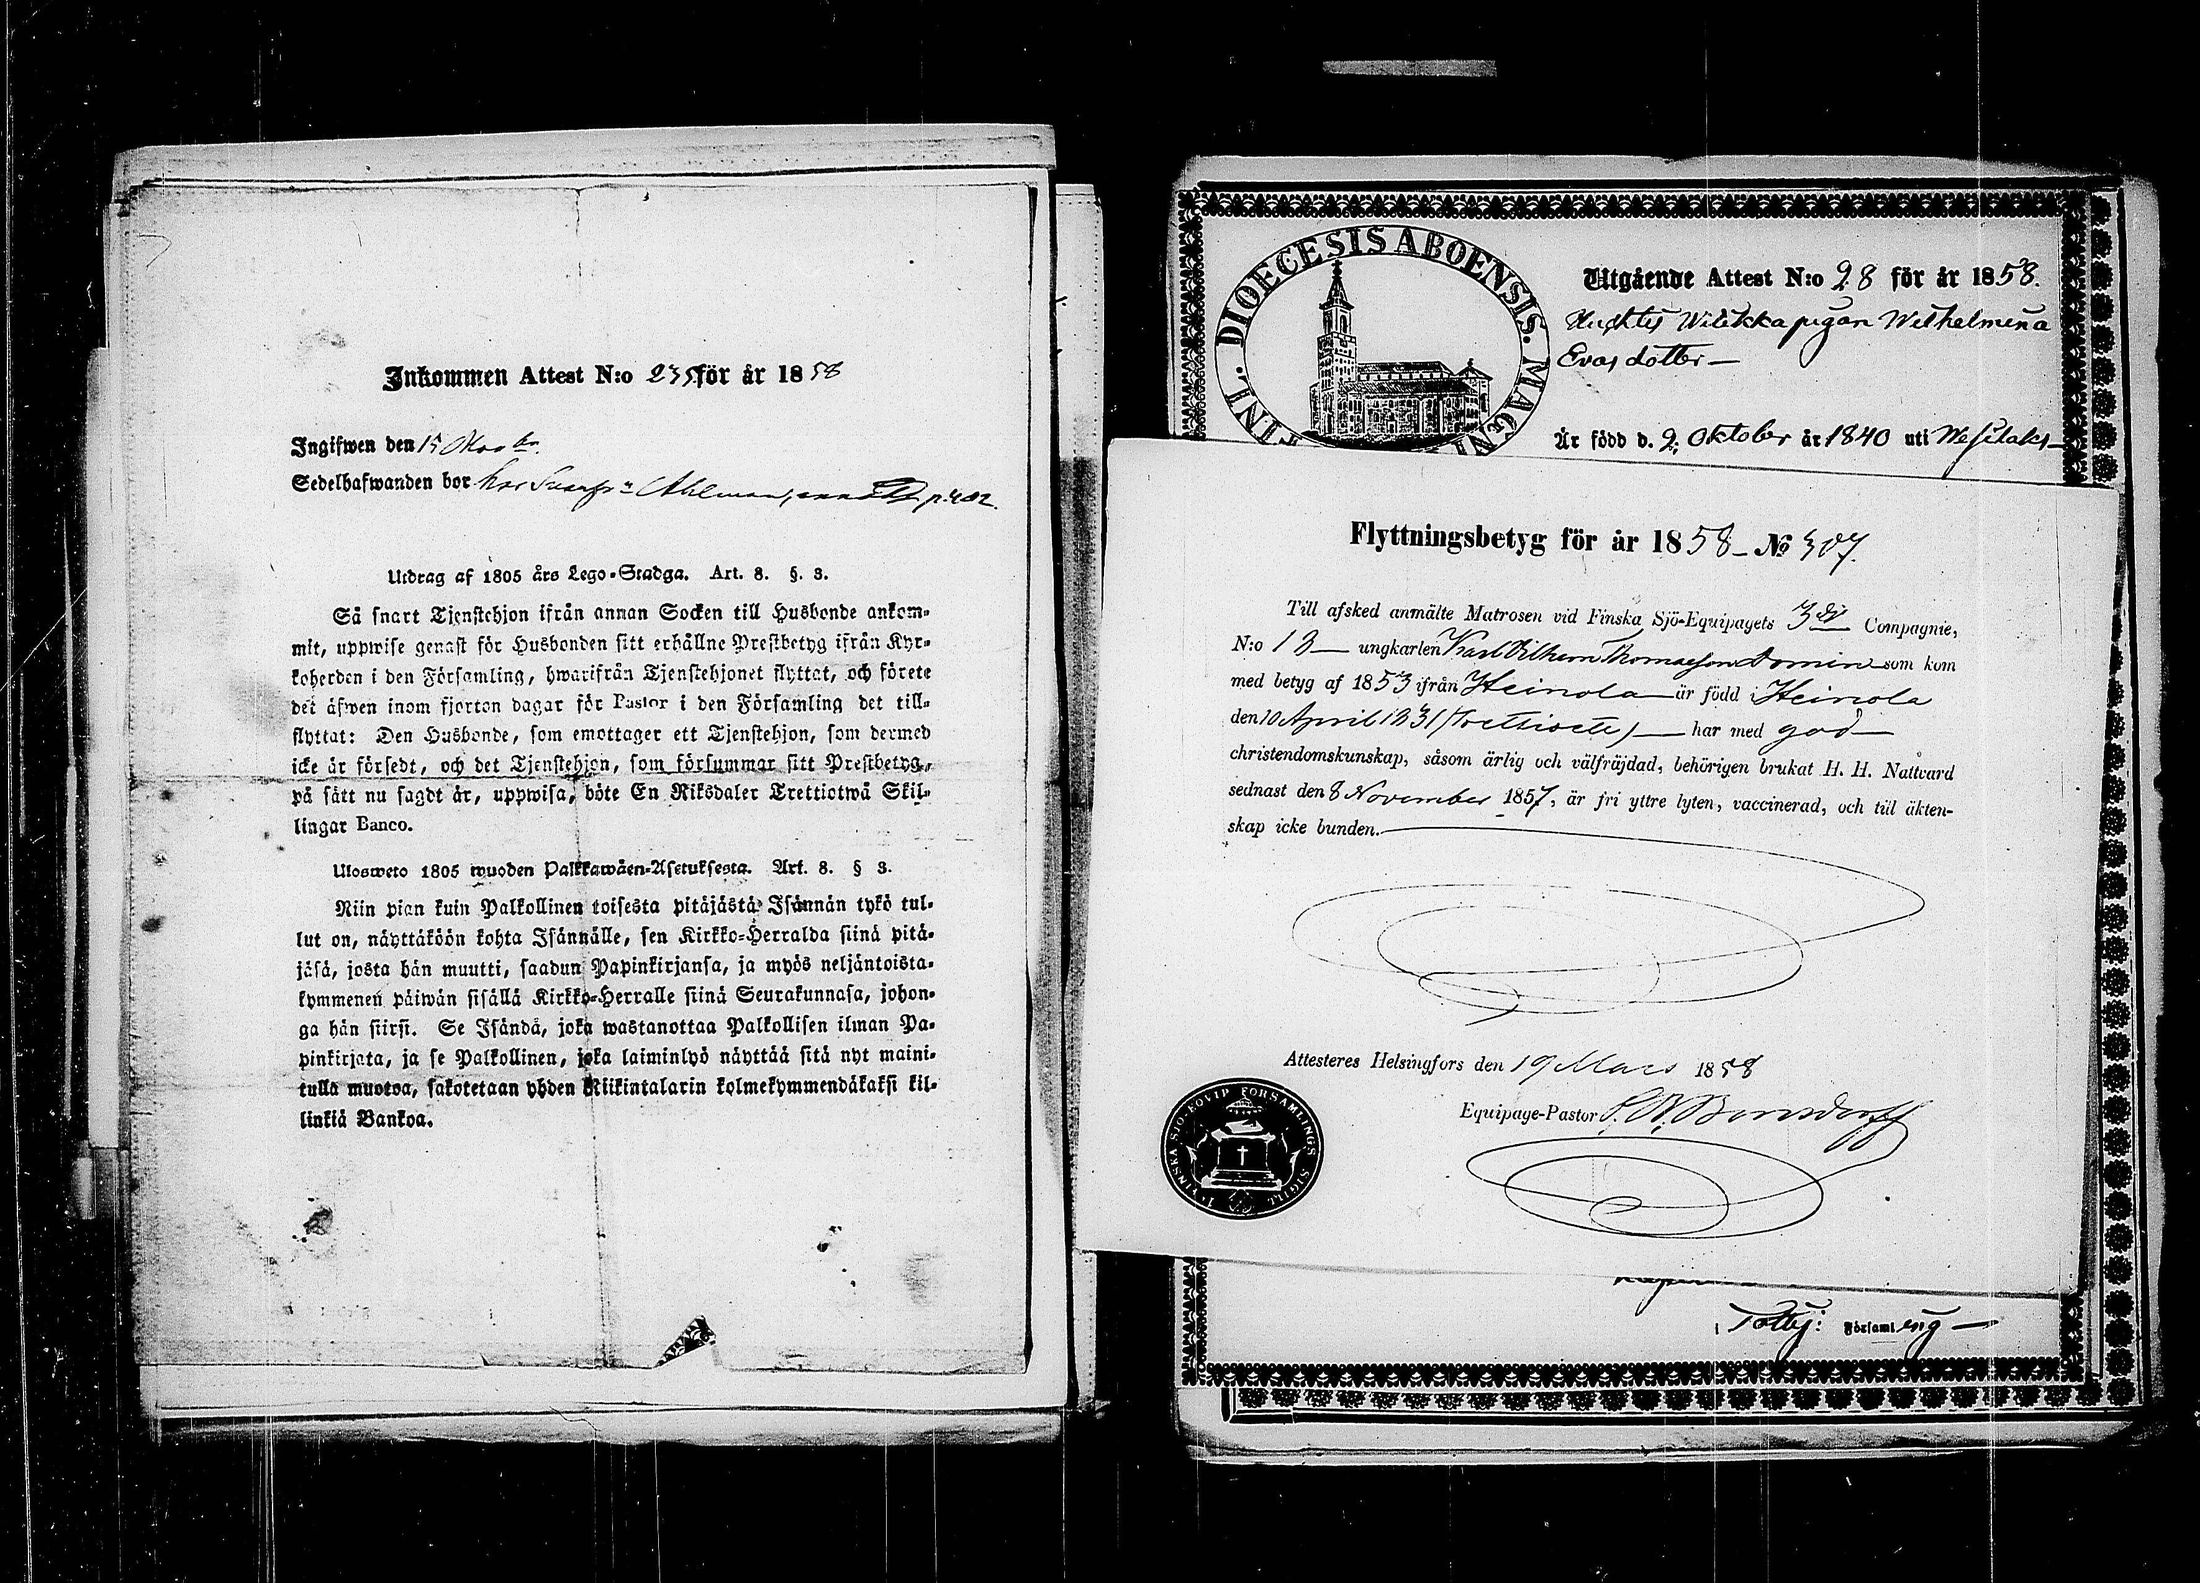 Inkommen Attest N:o 235 för år 1858
Ingifwen den 15 Novbr.
Sedelhafwanden bor hos Ahlman, p. 402.
Utdrag af 1805 års Lego-Stadga. Art. 8. §. 3.
Så snart Tjenstehjon ifrån annan Socken till Husbonde ankom-
mit, uppwise genast för Husbonden sitt erhållne Prestbetyg ifrån Kyr-
koherden i den Församling, hwarifrån Tjenstehjonet flyttat, och förete
det äfwen inom fjorton dagar för Pastor i den Församling det till-
flyttat: Den Husbonde, som emottager ett Tjenstehjon, som dermed
icke är försedt, och det Tjenstehjon, som försummar sitt Prestbetyg,
på sätt nu sagdt är, uppwisa, böte En Riksdaler Trettiotwå Skil-
lingar Banco.
Ulosweto 1805 wuoden Palkkawäen-Asetuksesta. Art. 8. § 3.
Niin pian kuin Palkollinen toisesta pitäjästä Isännän tykö tul-
lut on, näyttäköön kohta Isännälle, sen Kirkko-Herralda siinä pitä-
jäsä, josta hän muutti, saadun Papinkirjansa, ja myös neljäntoista-
kymmenen päiwän sisällä Kirkko-Herralle siinä Seurakunnasa, johon-
ga hän siirsi. Se Isändä, joka wastanottaa Palkollisen ilman Pa-
pinkirjata, ja se Palkollinen, joka laiminlyö näyttää sitä nyt maini-
tulla muotoa, sakotetaan yhden Riikintalarin kolmekymmendäkaksi kil-
linkiä Bankoa.
DIOECESIS ABOENSIS. MAGNI
FINL.
Utgående Attest N:o 28 för år 1858.
pigan Wilhelmina
Evasdotter
Är född d. 2. Oktober år 1840 uti
Flyttningsbetyg för år 1858 № 307.
Till afsked anmälte Matrosen vid Finska Sjö-Equipagets 3dje Compagnie,
N:o 13 ungkarlen Karl Vilhem Thomasson Domin som kom
med betyg af 1853 ifrån Heinola är född i Heinola
den 10 April 1831 (trettioett) har med god
christendomskunskap, såsom ärlig och välfräjdad, behörigen brukat H. H. Nattvard
sednast den 8 November 1857, är fri yttre lyten, vaccinerad, och till äkten-
skap icke bunden.
Attesteres Helsingfors den 19 Mars 1858
Equipage-Pastor Bonsdorff
FINSKA SJÖ-EQVIP FÖRSAMLINGS SIGILL
Församling